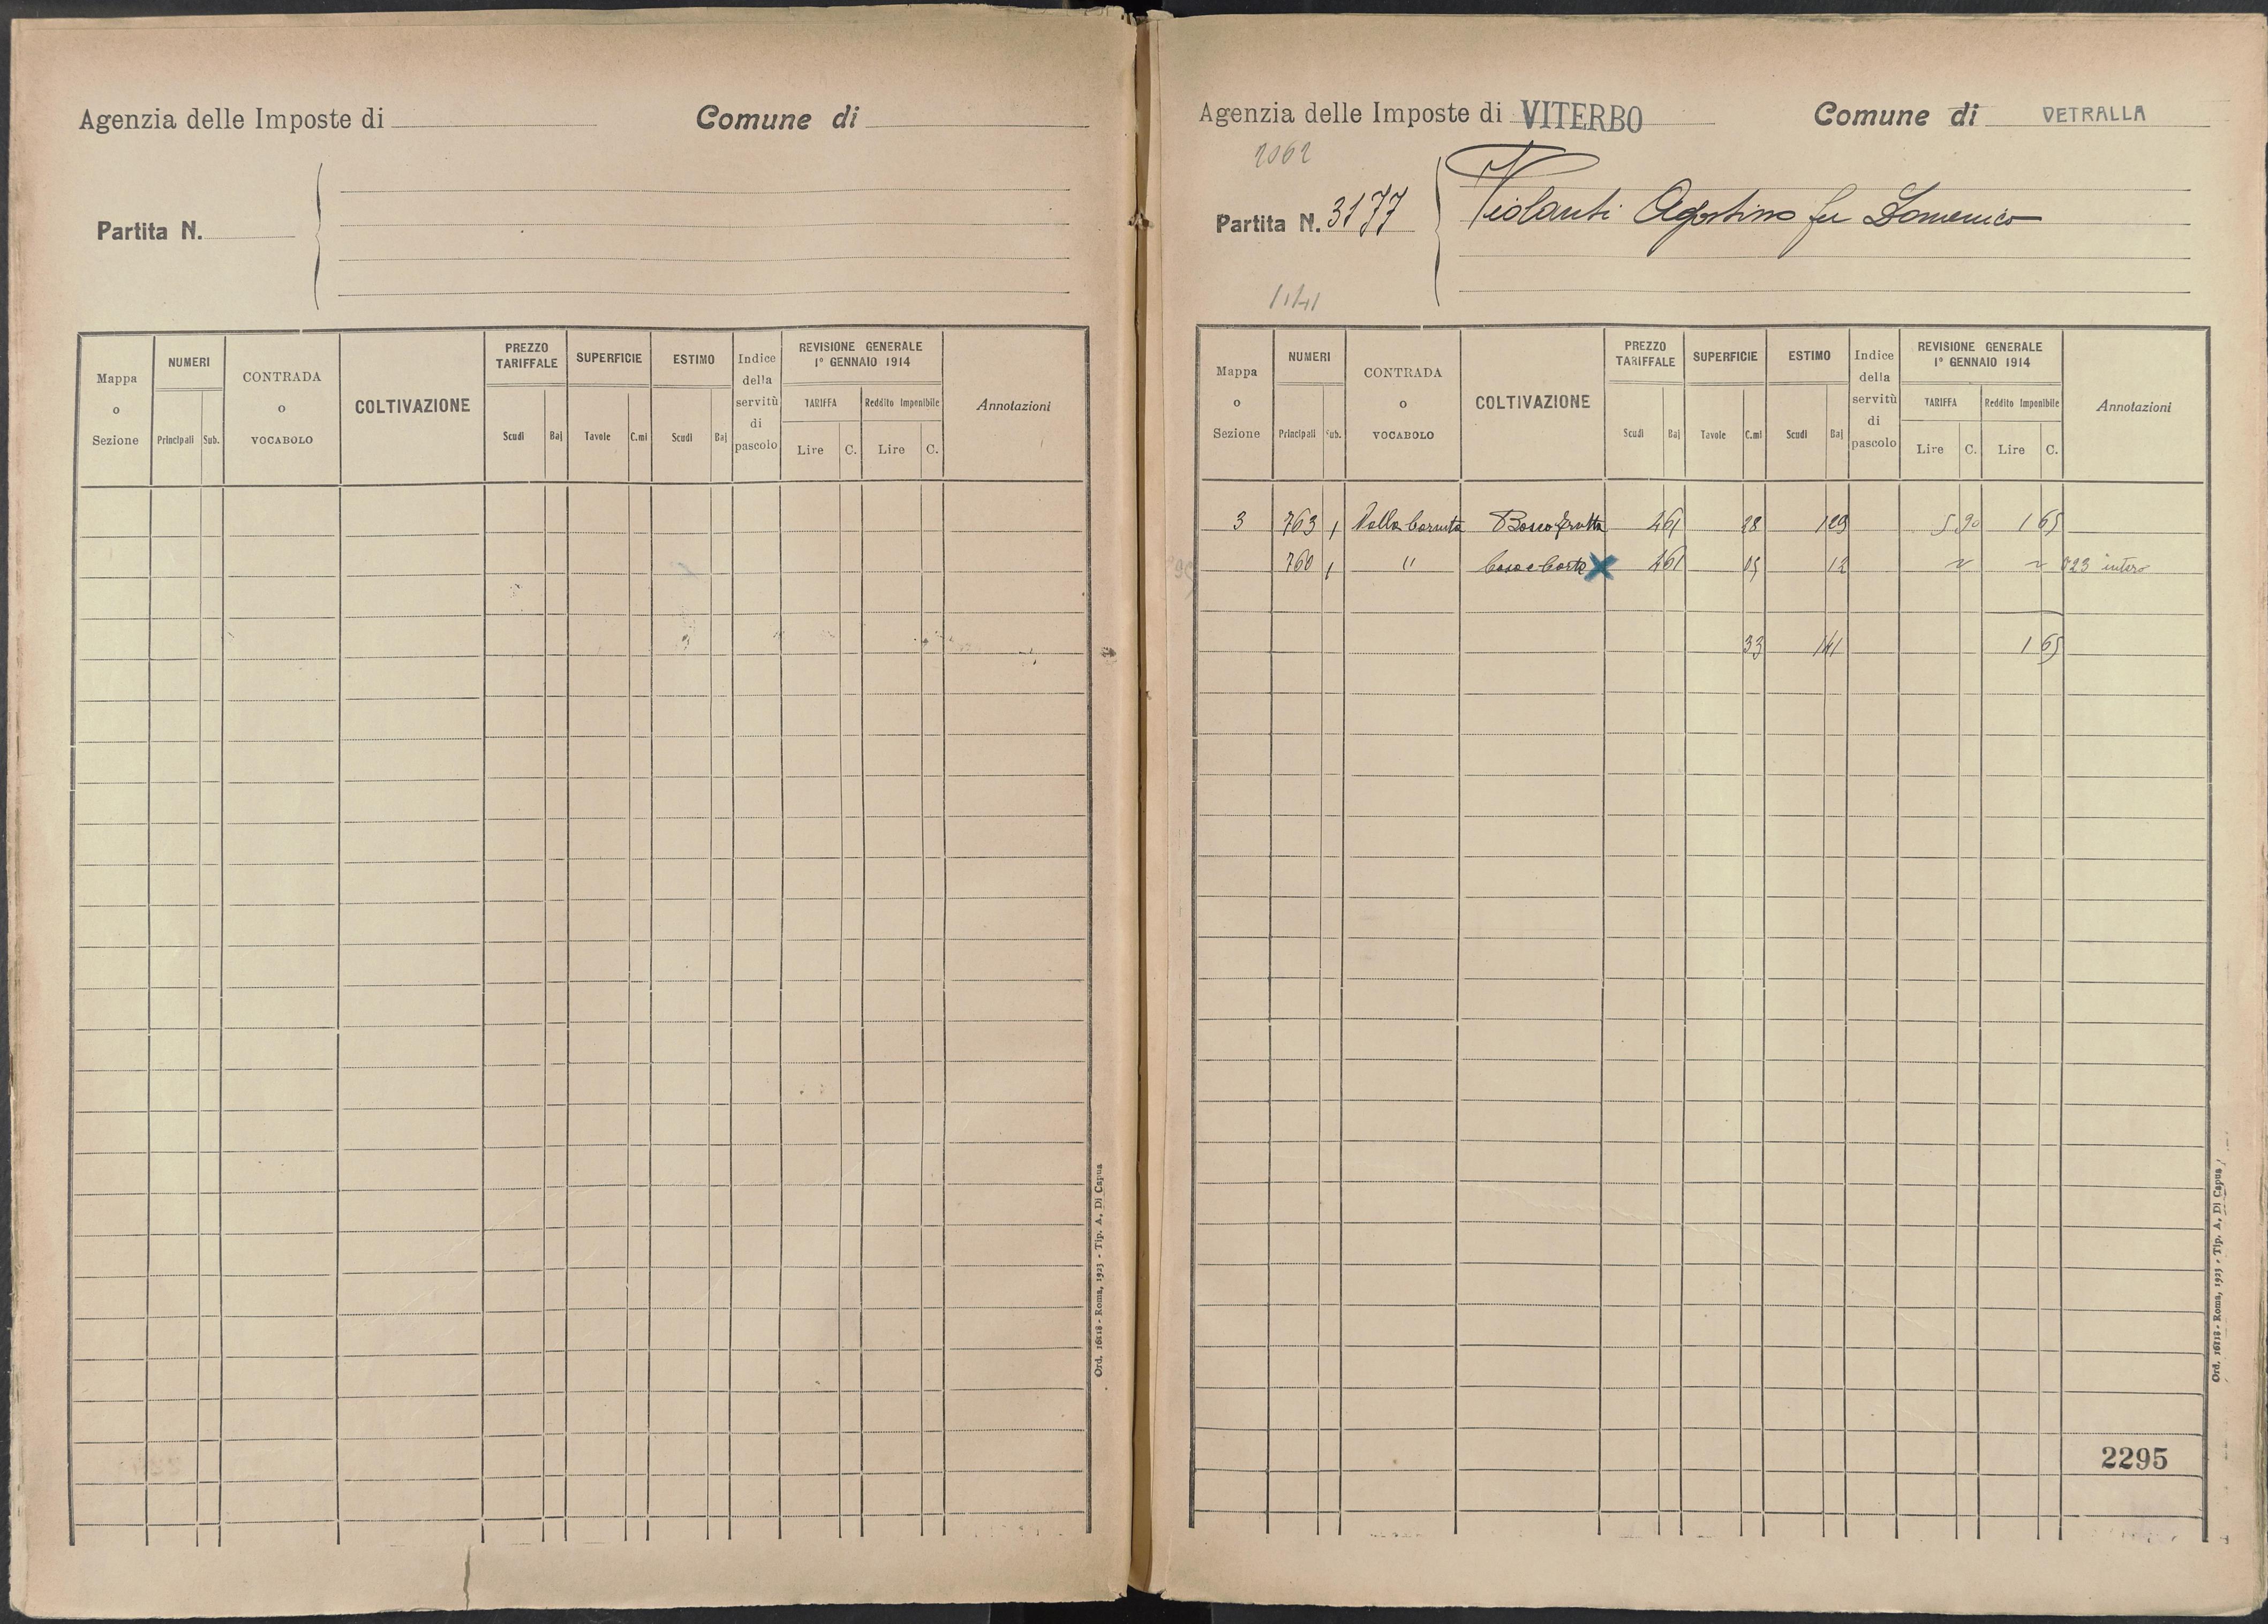 Agenzia delle Imposte di
Comune di
Partita N.
Mappa o Sezione
NUMERI
Principali
Sub.
CONTRADA o VOCABOLO
COLTIVAZIONE
PREZZO TARIFFALE
Scudi
Baj
SUPERFICIE
Tavole
C.mi
ESTIMO
Scudi
Baj
Indice della servitù di pascolo
REVISIONE GENERALE
1° GENNAIO 1914
TARIFFA
Reddito Imponibile
Lire
C.
Lire
C.
Annotazioni
Ord. 16118 - Roma, 1923 - Tip. A. Di Capua
Agenzia delle Imposte di VITERBO
Comune di VETRALLA
2062
Partita N. 3177
Violanti Agostino fu Domenico
Mappa o Sezione
NUMERI
Principali
Sub.
CONTRADA o VOCABOLO
COLTIVAZIONE
PREZZO TARIFFALE
Scudi
Baj
SUPERFICIE
Tavole
C.mi
ESTIMO
Scudi
Baj
Indice della servitù di pascolo
REVISIONE GENERALE
1° GENNAIO 1914
TARIFFA
Reddito Imponibile
Lire
C.
Lire
C.
Annotazioni
3 763 1 Bosco frutta 461 28 129 5 90 1 65
760 1 " Casa e Corte 461 05 12 intero
33 141 1 65
2295
Ord. 16118 - Roma, 1923 - Tip. A. Di Capua